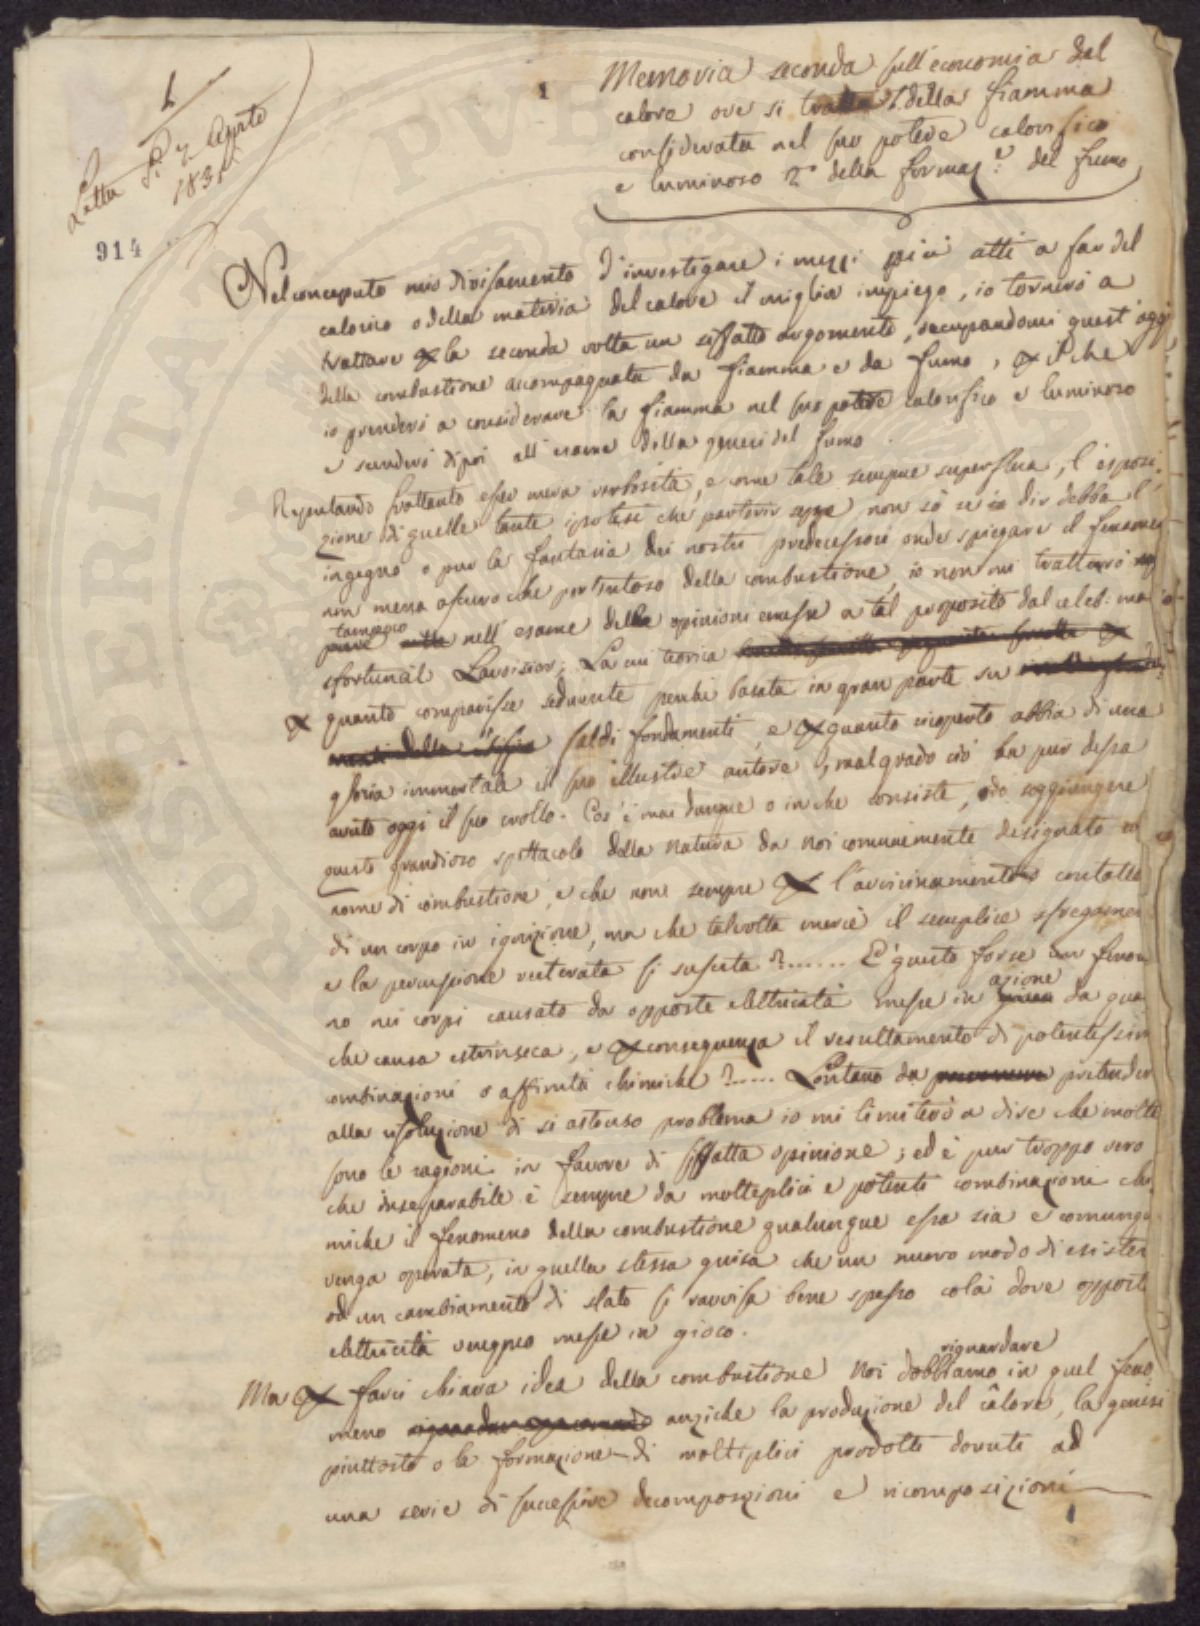 Letta li 7 Agosto
1835
914
1
Memoria seconda sull'economia del
calore ove si tratta 1.° della fiamma
considerata nel suo potere calorifico
e luminoso 2.° della formaz.e del fumo
Nel conceputo mio divisamento d'investigare i mezzi più atti a far del
calorico o della materia del calore il miglior impiego, io tornerò a
trattare per la seconda volta un siffatto argomento, occupandomi quest'oggi
della combustione accompagnata da fiamma e da fumo, per il che
io prenderò a considerare la fiamma nel suo potere calorifico e luminoso
e scenderò dipoi all'esame della genesi del fumo.
Reputando frattanto esser mera verbosità, e come tale sempre superflua, l'esposi
zione di quelle tante ipotesi che partorir seppe non sò se io dir debba l'
ingegno o pur la fantasia dei nostri predecessori onde spiegare il fenomeno
non meno oscuro che portentoso della combustione, io non mi tratterrò
tampoco
nell'esame delle opinioni emesse a tal proposito dal celeb: ma
sfortunat. Lavoisier; La cui teorica
per quanto comparisse seducente perchè basata in gran parte su
saldi fondamenti, e per quanto ricoperto abbia di una
gloria immortale il suo illustre autore, malgrado ciò ha pur dessa
avuto oggi il suo crollo. Cos'è mai dunque o in che consiste, odo soggiungere
questo grandioso spettacolo della natura da noi comunemente designato col
nome di combustione, e che non sempre per l'avvicinamento o contatto
di un corpo in ignizione, ma che talvolta mercè il semplice sfregamen
e la percussione reiterata si suscita?....... È questo forse un fenom
azione
no nei corpi causato da opposte elettricità messe in da qual
che causa estrinseca, e per conseguenza il resultamento di potentissim
combinazioni o affinità chimiche?...... Lontano da pretender
alla risoluzione di sì astruso problema io mi limiterò a dire che molte
sono le ragioni in favore di siffatta opinione; ed è pur troppo vero
che inseparabile è sempre da molteplici e potenti combinazioni chi
miche il fenomeno della combustione qualunque essa sia e comunqu
venga operata, in quella stessa guisa che un nuovo modo di esister
od un cambiamento di stato si ravvisa bene spesso colà dove oppost
elettricità vengono messe in gioco.
riguardare
Ma per farci chiara idea della combustione noi dobbiamo in quel feno
meno anzichè la produzione del calore, la genesi
piuttosto o la formazione di moltiplici prodotti dovuti ad
una serie di successive decomposizioni e ricomposizioni
1